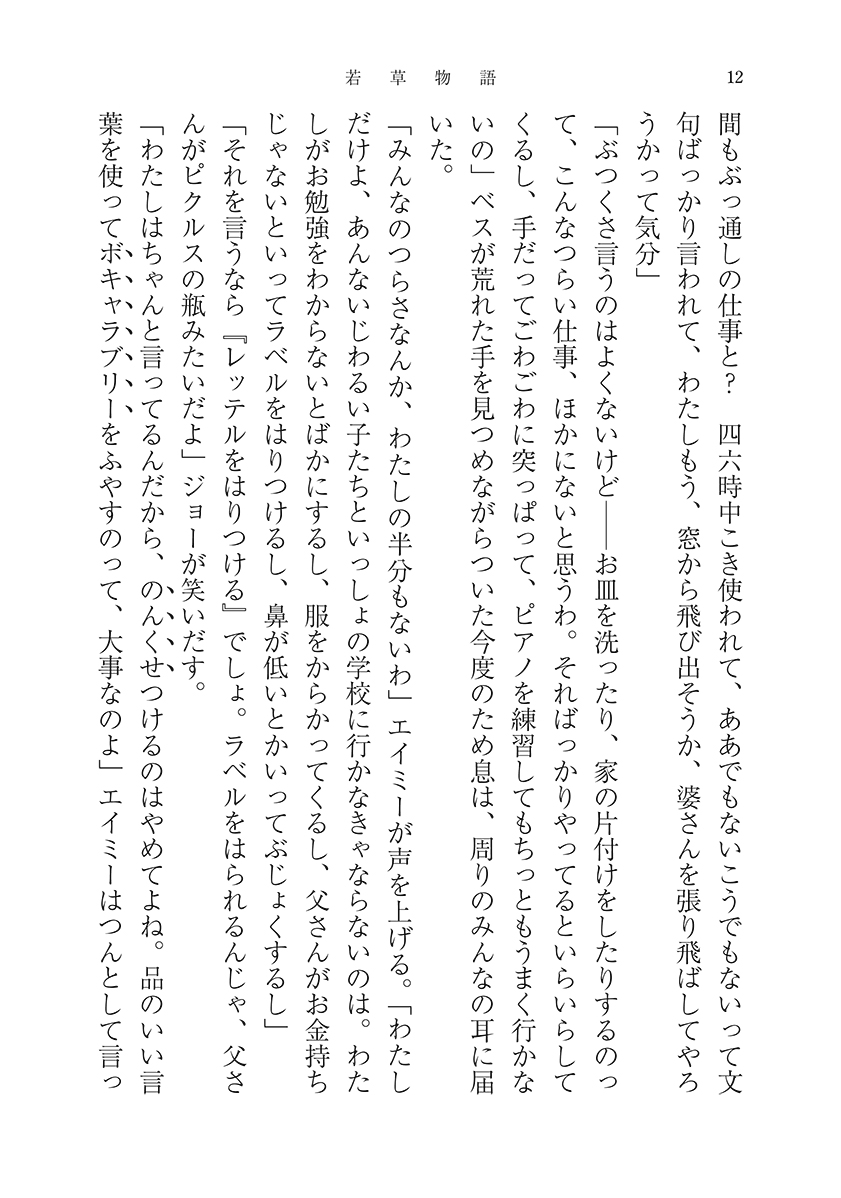 若草物語
12
間もぶっ通しの仕事と？　四六時中こき使われて、ああでもないこうでもないって文
句ばっかり言われて、わたしもう、窓から飛び出そうか、婆さんを張り飛ばしてやろ
うかって気分」
「ぶつくさ言うのはよくないけど——お皿を洗ったり、家の片付けをしたりするのっ
て、こんなつらい仕事、ほかにないと思うわ。そればっかりやってるといらいらして
くるし、手だってごわごわに突っぱって、ピアノを練習してもちっともうまく行かな
いの」ベスが荒れた手を見つめながらついた今度のため息は、周りのみんなの耳に届
いた。
「みんなのつらさなんか、わたしの半分もないわ」エイミーが声を上げる。「わたし
だけよ、あんないじわるい子たちといっしょの学校に行かなきゃならないのは。わた
しがお勉強をわからないとばかにするし、服をからかってくるし、父さんがお金持ち
じゃないといってラベルをはりつけるし、鼻が低いとかいってぶじょくするし」
「それを言うなら『レッテルをはりつける』でしょ。ラベルをはられるんじゃ、父さ
んがピクルスの瓶みたいだよ」ジョーが笑いだす。
「わたしはちゃんと言ってるんだから、のんくせつけるのはやめてよね。品のいい言
葉を使ってボキャラブリーをふやすのって、大事なのよ」エイミーはつんとして言っ